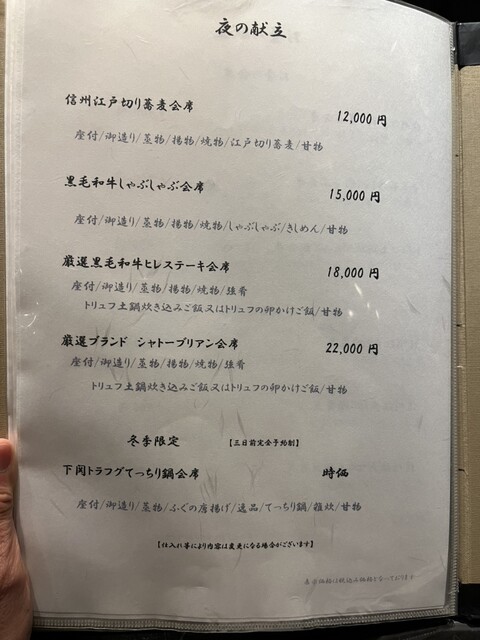 夜の献立
信州江戸切り蕎麦会席 12,000 円
座付/御造り/蒸物/揚物/焼物/江戸切り蕎麦/甘物
黒毛和牛しゃぶしゃぶ会席 15,000 円
座付/御造り/蒸物/揚物/焼物/しゃぶしゃぶ/きしめん/甘物
厳選黒毛和牛ヒレステーキ会席 18,000 円
座付/御造り/蒸物/揚物/焼物/強肴
トリュフ土鍋炊き込みご飯又はトリュフの卵かけご飯/甘物
厳選ブランド シャトーブリアン会席 22,000 円
座付/御造り/蒸物/揚物/焼物/強肴
トリュフ土鍋炊き込みご飯又はトリュフの卵かけご飯/甘物
冬季限定 【三日前完全予約制】
下関トラフグてっちり鍋会席 時価
座付/御造り/蒸物/ふぐの唐揚げ/逸品/てっちり鍋/雑炊/甘物
【仕入れ等により内容は変更になる場合がございます】
表示価格は税込み価格となっております